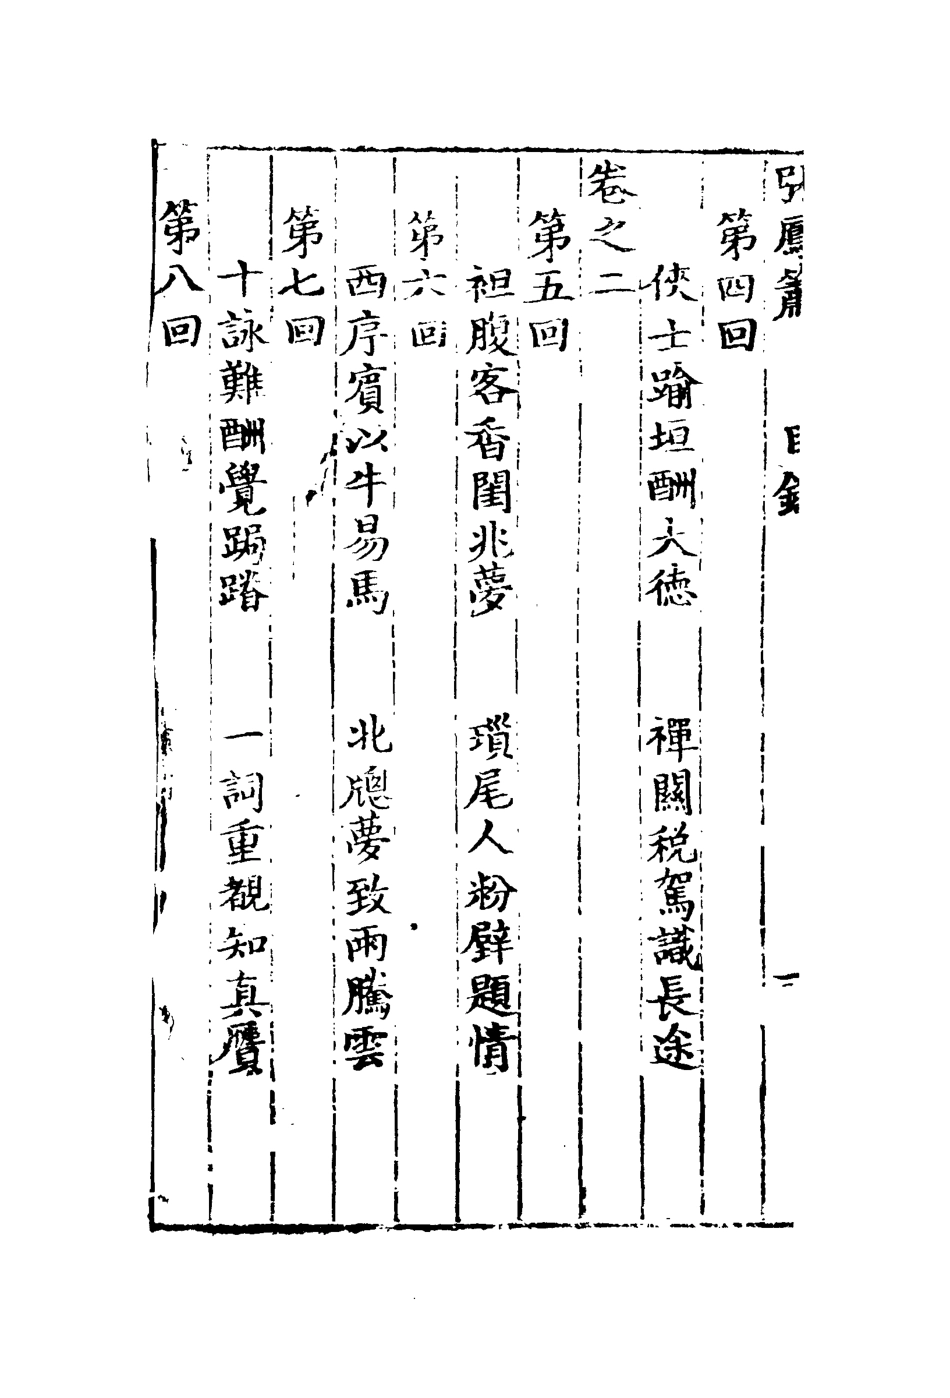 引鳳簫 目錄 二
第四回
俠士踰垣酬大德 禪關稅駕識長途
卷之二
第五回
袒腹客香閨兆夢 瑣尾人粉壁題情
第六回
西序賓以牛易馬 北牕夢致雨騰雲
第七回
十詠難酬覺跼蹐 一詞重覩知真贋
第八回